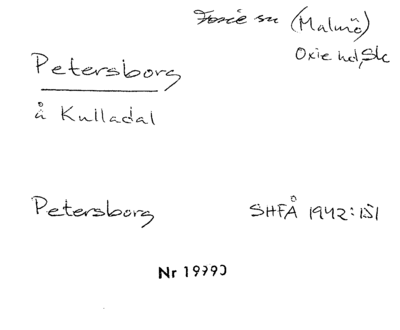 Fosie sn (Malmö)
Oxie hd, Sk
Petersborg
å Kulladal
Petersborg SHFÅ 1942:151
Nr 19990